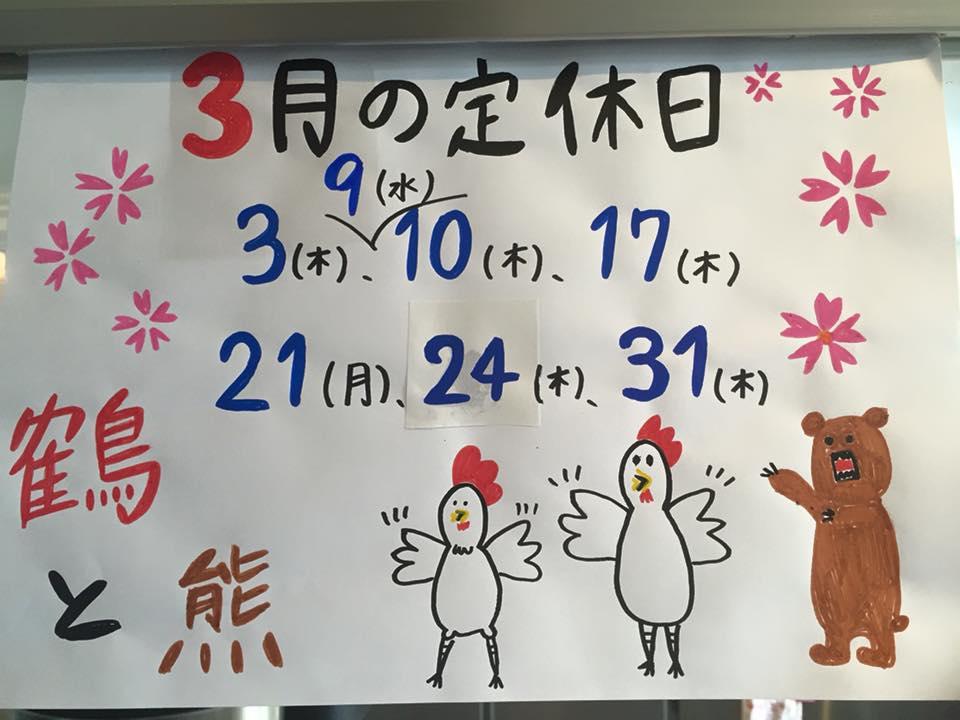 3月の定休日
9(水)
3(木)、10(木)、17(木)
21(月)、24(木)、31(木)
鶴
と熊